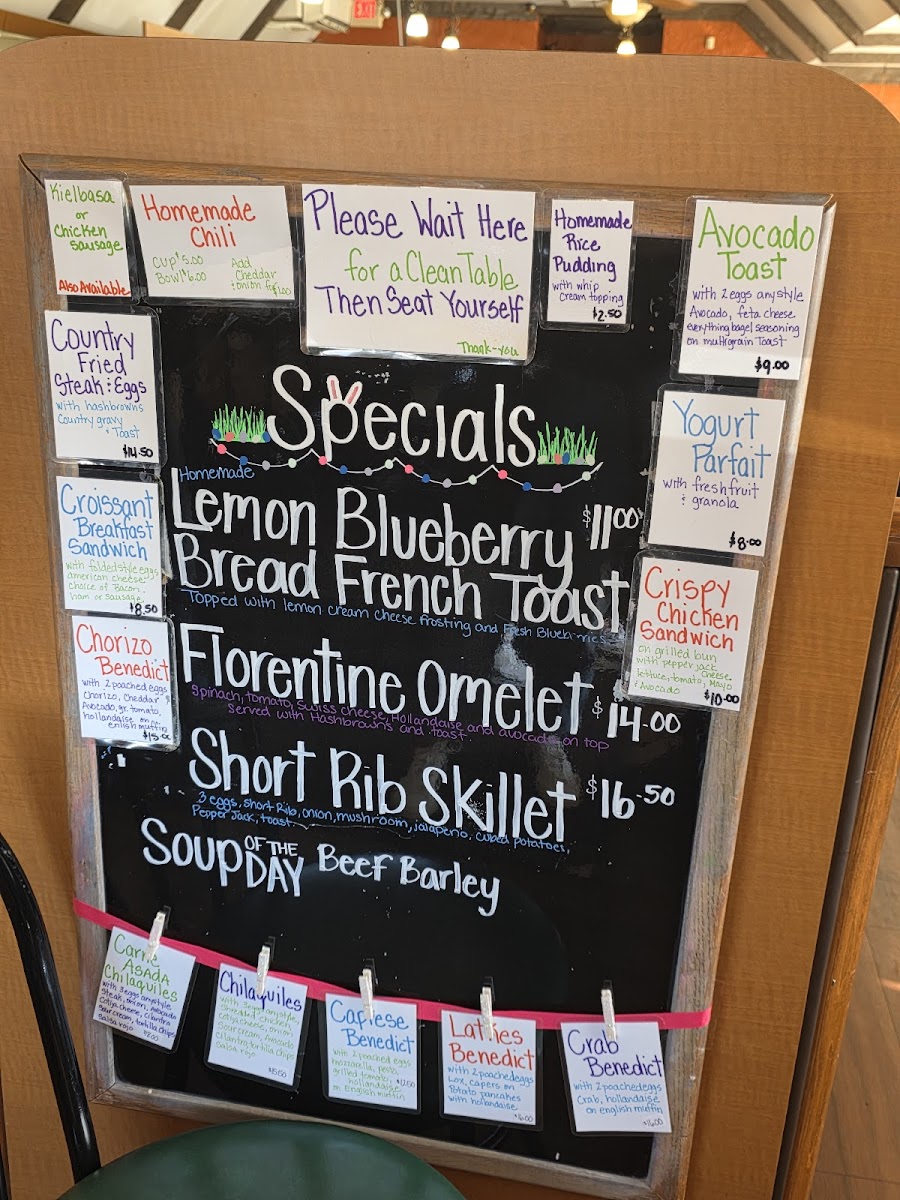 EXIT
Kielbasa
or
Chicken
Sausage
Also Available
Homemade
Chili
Cup $5.00
Bowl $6.00
Add
Cheddar
+ onion for $1.00
Please Wait Here
for a Clean Table
Then Seat Yourself
Thank-you
Homemade
Rice
Pudding
with whip
cream topping
$2.50
Avocado
Toast
with 2 eggs any style
Avocado, feta cheese
everything bagel seasoning
on multigrain Toast
$9.00
Country
Fried
Steak & Eggs
with hashbrowns
Country gravy
& Toast
$14.50
Croissant
Breakfast
Sandwich
with folded style eggs
american cheese
choice of Bacon,
ham or sausage
$8.50
Chorizo
Benedict
with 2 poached eggs
Chorizo, Cheddar
Avocado, gr. tomato,
hollandaise on
enlish muffin
Specials
Homemade
Lemon Blueberry $11.00
Bread French Toast
Topped with lemon cream cheese frosting and Fresh Blueberries
Florentine Omelet $14.00
Spinach, tomato, swiss cheese, Hollandaise and avocado on top
served with Hashbrowns and toast
Short Rib Skillet $16.50
3 eggs, short Rib, onion, mushroom, jalapeno, cubed potatoes,
Pepper Jack, toast
Soup OF THE DAY Beef Barley
Yogurt
Parfait
with fresh fruit
& granola
$8.00
Crispy
Chicken
Sandwich
on grilled bun
with pepper jack
cheese
lettuce, tomato, Mayo
& Avocado
$10.00
Carne
Asada
Chilaquiles
with 3 eggs any style
Steak, onion, Avocado
Cotija cheese, cilantro
sour cream, tortilla chips
Salsa rojo
Chilaquiles
with 3 eggs any style,
shredded chicken,
cotija cheese, onion
sour cream, Avocado
cilantro, tortilla chips
Salsa rojo
$15.50
Caprese
Benedict
with 2 poached eggs
mozzarella, pesto,
grilled tomato,
hollandaise
on English muffin
Latkes
Benedict
with 2 poached eggs
Lox, capers on
Potato pancakes
with hollandaise
$16.00
Crab
Benedict
with 2 poached eggs
Crab, hollandaise
on english muffin
$16.00